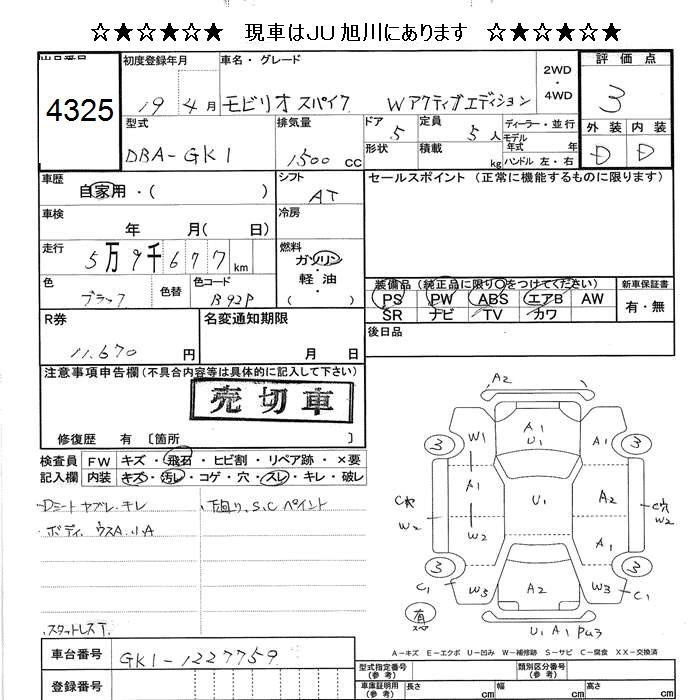 ☆★☆★☆★☆ 現車はJU旭川にあります ☆★☆★☆★☆
出品番号 初度登録年月 車名・グレード 2WD・4WD 評価点
4325 19年4月 モビリオスパイク Wアクティブエディション 3
型式 排気量 ドア 5 定員 5人 ディーラー・並行 外装 内装
モデル年式 年
DBA-GK1 1500cc 形状 積載 kg ハンドル 左・右 D D
車歴 自家用・( ) シフト AT セールスポイント (正常に機能するものに限ります)
車検 年 月( 日) 冷房
走行 5万9千677km 燃料 ガソリン・軽油 ( )
色 ブラック 色替 色コード B92P
装備品 (純正品に限り○をつけてください) 新車保証書
PS PW ABS エアB AW 有・無
SR ナビ TV カワ
R券 11,670円 名変通知期限 月 日 後日品
注意事項申告欄(不具合内容等は具体的に記入して下さい)
売切車
修復歴 有 〔箇所 〕
検査員 FW キズ・飛石・ヒビ割・リペア跡・×要
記入欄 内装 キズ・汚レ・コゲ・穴・スレ・キレ・破レ
Dシート ヤブレ・キレ 下回り、S、C ペイント
ボディ ウスA.U.A
スタットレスT.
A2
W1 A1 U1 A1
3 3
A1 U1 A2
C穴 W2 W2 C穴 W2
A1
3 3
C1 W3 A2 W3 C1
有 スペ
U1 A1 Pa3
A-キズ E-エクボ U-凹み W-補修跡 S-サビ C-腐食 XX-交換済
車台番号 GK1-1227759
型式指定番号(参考) 類別区分番号(参考)
登録番号 車庫証明用(参考) 長さ cm 幅 cm 高さ cm